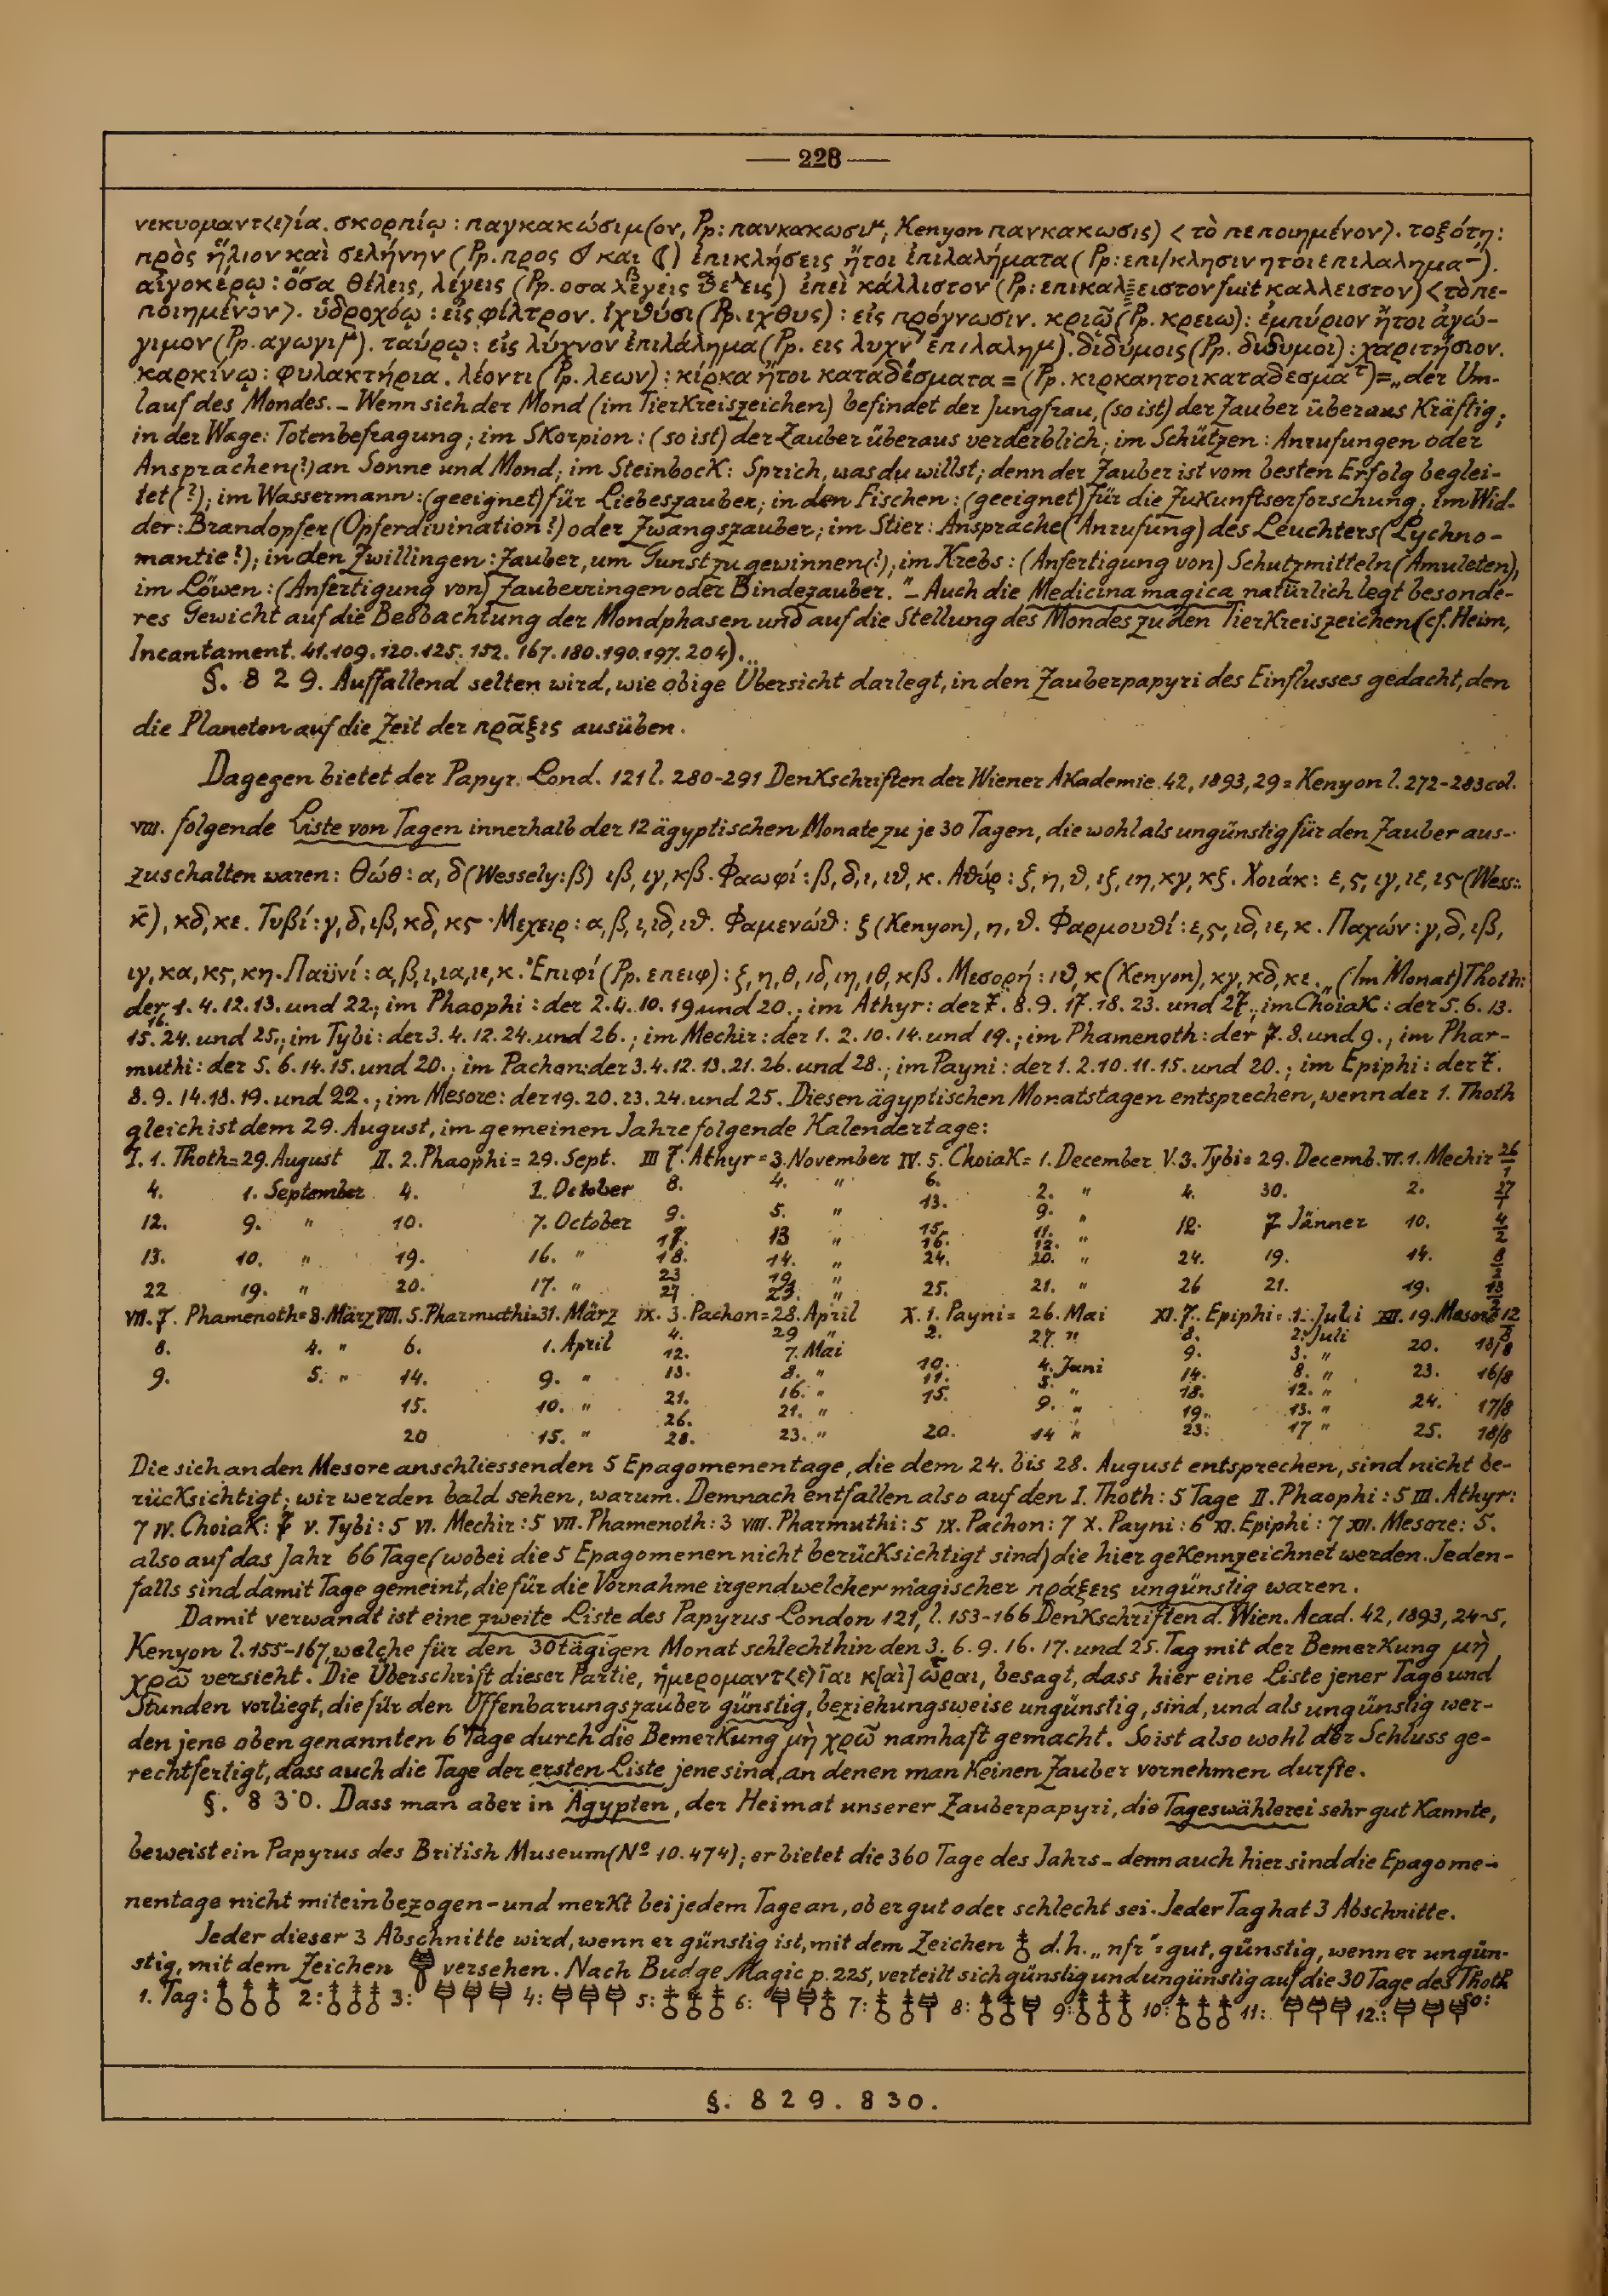 — 228 —
νεκυομαντ<ε>ία. σκορπίῳ: παγκακώσιμ(ον, Pp: πανκακωσιμ; Kenyon πανκακωσις) <τὸ πεποιημένον>. τοξότῃ:
πρὸς ἥλιον καὶ σελήνην (Pp. προς ☌ και ☾) ἐπικλήσεις ἤτοι ἐπιλαλήματα (Pp: επι/κλησιν ητοι επιλαλημα).
αἰγοκέρῳ: ὅσα θέλεις, λέγεις (Pp. οσα λεγεις θελεις) ἐπεὶ κάλλιστον (Pp: fuit καλλειστον) <τὸ πε-
ποιημένον>. ὑδροχόῳ: εἰς φίλτρον. ἰχθύσι (Pp. ιχθυς): εἰς πρόγνωσιν. κριῷ (Pp. κρειω): ἐμπύριον ἤτοι ἀγώ-
γιμον (Pp. αγωγιμ). ταύρῳ: εἰς λύχνον ἐπιλάλημα (Pp. εις λυχν επιλαλημ). διδύμοις (Pp. διδυμοι): χαριτήσιον.
καρκίνῳ: φυλακτήρια. λέοντι (Pp. λεων): κίρκα ἤτοι καταδέσματα = (Pp. κιρκα ητοι καταδεσματ) = „der Um-
lauf des Mondes. – Wenn sich der Mond (im Tierkreiszeichen) befindet der Jungfrau, (so ist) der Zauber überaus kräftig;
in der Wage: Totenbefragung; im Skorpion: (so ist) der Zauber überaus verderblich; im Schützen: Anrufungen oder
Ansprachen(?) an Sonne und Mond; im Steinbock: Sprich, was du willst; denn der Zauber ist vom besten Erfolg beglei-
tet(?); im Wassermann: (geeignet) für Liebeszauber; in den Fischen: (geeignet) für die Zukunftserforschung; im Wid-
der: Brandopfer (Opferdivination?) oder Zwangszauber; im Stier: Ansprache (Anrufung) des Leuchters (Lychno-
mantie?); in den Zwillingen: Zauber, um Gunst zu gewinnen(?); im Krebs: (Anfertigung von) Schutzmitteln (Amuleten),
im Löwen: (Anfertigung von) Zauberringen oder Bindezauber." – Auch die Medicina magica natürlich legt besonde-
res Gewicht auf die Beobachtung der Mondphasen und auf die Stellung des Mondes zu den Tierkreiszeichen (cf. Heim,
Incantament. 41. 109. 120. 125. 152. 167. 180. 190. 197. 204).
§. 829. Auffallend selten wird, wie obige Übersicht darlegt, in den Zauberpapyri des Einflusses gedacht, den
die Planeten auf die Zeit der πρᾶξις ausüben.
Dagegen bietet der Papyr. Lond. 121 l. 280-291 Denkschriften der Wiener Akademie 42, 1893, 29 = Kenyon l. 272-283 col.
VIII. folgende Liste von Tagen innerhalb der 12 ägyptischen Monate zu je 30 Tagen, die wohl als ungünstig für den Zauber aus-
zuschalten waren: Θώθ: α, δ (Wessely: β) ιβ, ιγ, κβ. Φαωφί: β, δ, ι, ιθ, κ. Ἀθύρ: ξ, η, θ, ιξ, ιη, κγ, κξ. Χοιάκ: ε, ς, ιγ, ιε, ις (Wess.:
κ̄), κδ, κε. Τυβί: γ, δ, ιβ, κδ, κς. Μεχειρ: α, β, ι, ιδ, ιθ. Φαμενώθ: ξ (Kenyon), η, θ. Φαρμουθί: ε, ς, ιδ, ιε, κ. Παχών: γ, δ, ιβ,
ιγ, κα, κς, κη. Παϋνί: α, β, ι, ια, ιε, κ. Ἐπιφί (Pp. επειφ): ξ, η, θ, ιδ, ιη, ιθ, κβ. Μεσορή: ιθ, κ (Kenyon), κγ, κδ, κε. „(Im Monat) Thoth:
der 1. 4. 12. 13. und 22.; im Phaophi: der 2. 4. 10. 19 und 20.; im Athyr: der 7. 8. 9. 17. 18. 23. und 27.; im Choiak: der 5. 6. 13.
15. 16. 24. und 25.; im Tybi: der 3. 4. 12. 24. und 26.; im Mechir: der 1. 2. 10. 14. und 19.; im Phamenoth: der 7. 8. und 9.; im Phar-
muthi: der 5. 6. 14. 15. und 20.; im Pachon: der 3. 4. 12. 13. 21. 26. und 28.; im Payni: der 1. 2. 10. 11. 15. und 20.; im Epiphi: der 7.
8. 9. 14. 18. 19. und 22.; im Mesore: der 19. 20. 23. 24. und 25. Diesen ägyptischen Monatstagen entsprechen, wenn der 1. Thoth
gleich ist dem 29. August, im gemeinen Jahre folgende Kalendertage:
I. 1. Thoth = 29. August II. 2. Phaophi = 29. Sept. III 7. Athyr = 3. November IV. 5. Choiak = 1. December V. 3. Tybi = 29. Decemb. VI. 1. Mechir 26/1
4. 1. September 4. 1. October 8. 4. " 6. 2. " 4. 30. 2. 27/1
12. 9. " 10. 7. October 9. 5. " 13. 9. " 12. 7 Jänner 10. 4/2
17. 13 " 15. 11.
13. 10. " 19. 16. " 18. 14. " 16. 12. " 24. 19. 14. 8/2
23 19. " 24. 20. "
22 19. " 20. 17. " 27 23. " 25. 21. " 26 21. 19. 13/2
VII. 7. Phamenoth = 3. März VIII. 5. Pharmuthi = 31. März IX. 3. Pachon = 28. April X. 1. Payni = 26. Mai XI. 7. Epiphi = 1. Juli XII. 19. Mesore 12/8
8. 4. " 6. 1. April 4. 29 " 2. 27. " 8. 2. Juli 20. 13/8
12. 7. Mai 9. 3. "
9. 5. " 14. 9. " 13. 8. " 10. 4. Juni 14. 8. " 23. 16/8
21. 16. " 11. 5. " 18. 12. "
15. 10. " 26. 21. " 15. 9. " 19. 13. " 24. 17/8
20 15. " 28. 23. " 20. 14 " 23. 17 " 25. 18/8
Die sich an den Mesore anschliessenden 5 Epagomenentage, die dem 24. bis 28. August entsprechen, sind nicht be-
rücksichtigt; wir werden bald sehen, warum. Demnach entfallen also auf den I. Thoth: 5 Tage II. Phaophi: 5 III. Athyr:
7 IV. Choiak: 7 V. Tybi: 5 VI. Mechir: 5 VII. Phamenoth: 3 VIII. Pharmuthi: 5 IX. Pachon: 7 X. Payni: 6 XI. Epiphi: 7 XII. Mesore: 5.
also auf das Jahr 66 Tage (wobei die 5 Epagomenen nicht berücksichtigt sind) die hier gekennzeichnet werden. Jeden-
falls sind damit Tage gemeint, die für die Vornahme irgendwelcher magischer πράξεις ungünstig waren.
Damit verwandt ist eine zweite Liste des Papyrus London 121, l. 153-166 Denkschriften d. Wien. Acad. 42, 1893, 24-5,
Kenyon l. 155-167, welche für den 30tägigen Monat schlechthin den 3. 6. 9. 16. 17. und 25. Tag mit der Bemerkung μὴ
χρῶ versieht. Die Überschrift dieser Partie, ἡμερομαντ<ε>ῖαι κ[αὶ] ὧραι, besagt, dass hier eine Liste jener Tage und
Stunden vorliegt, die für den Offenbarungszauber günstig, beziehungsweise ungünstig, sind, und als ungünstig wer-
den jene oben genannten 6 Tage durch die Bemerkung μὴ χρῶ namhaft gemacht. So ist also wohl der Schluss ge-
rechtfertigt, dass auch die Tage der ersten Liste jene sind, an denen man keinen Zauber vornehmen durfte.
§. 830. Dass man aber in Ägypten, der Heimat unserer Zauberpapyri, die Tageswählerei sehr gut kannte,
beweist ein Papyrus des British Museum (Nº 10.474); er bietet die 360 Tage des Jahrs – denn auch hier sind die Epagome-
nentage nicht miteinbezogen – und merkt bei jedem Tage an, ob er gut oder schlecht sei. Jeder Tag hat 3 Abschnitte.
Jeder dieser 3 Abschnitte wird, wenn er günstig ist, mit dem Zeichen d.h. „nfr" = gut, günstig, wenn er ungün-
stig, mit dem Zeichen versehen. Nach Budge Magic p. 225, verteilt sich günstig und ungünstig auf die 30 Tage des Thoth
so:
1. Tag: 2: 3: 4: 5: 6: 7: 8: 9: 10: 11: 12.:
§. 829. 830.